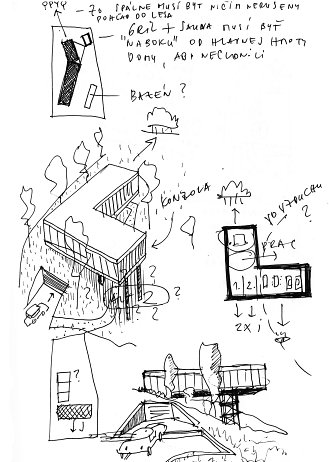 - ZO SPÁLNE MUSÍ BYŤ NIČÍM NERUŠENÝ
POHĽAD DO LESA
- "GRIL + SAUNA MUSÍ BYŤ
"NABOKU" OD HLAVNEJ HMOTY
DOMU, ABY NECLONILI
BAZÉN ?
KONZOLA
VO VZDUCHU
?
PRAC
1. 2.
2X i
?
?
?
?
?
J